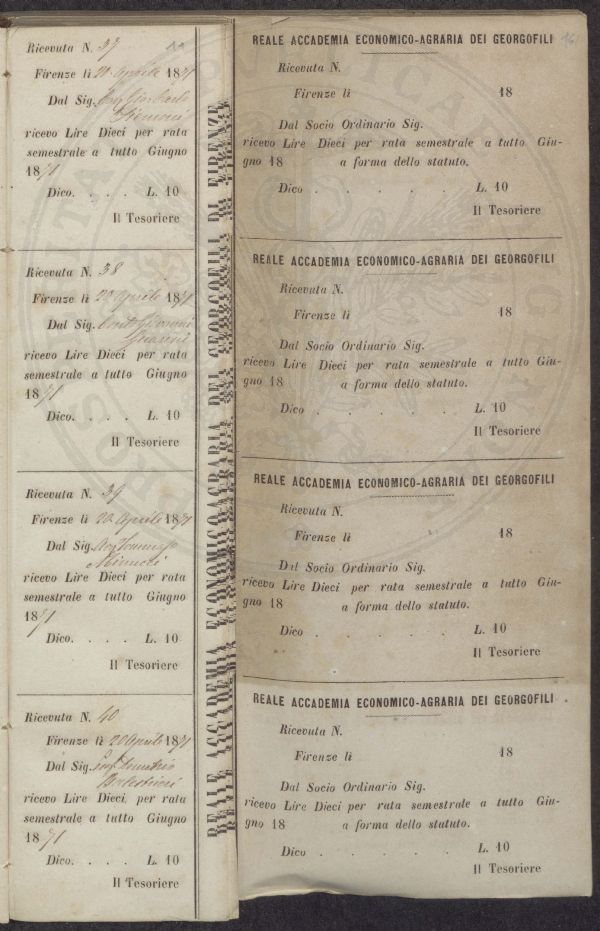 Ricevuta N. 37
Firenze li 20 Aprile 1871
Dal Sig.
ricevo Lire Dieci per rata
semestrale a tutto Giugno
1871
Dico. . . . L. 10
Il Tesoriere
Ricevuta N. 38
Firenze li 20 Aprile 1871
Dal Sig.
ricevo Lire Dieci per rata
semestrale a tutto Giugno
1871
Dico. . . . L. 10
Il Tesoriere
Ricevuta N. 39
Firenze li 20 Aprile 1871
Dal Sig.
Minucci
ricevo Lire Dieci per rata
semestrale a tutto Giugno
1871
Dico. . . . L. 10
Il Tesoriere
Ricevuta N. 40
Firenze li 20 Aprile 1871
Dal Sig.
ricevo Lire Dieci per rata
semestrale a tutto Giugno
1871
Dico. . . . L. 10
Il Tesoriere
REALE ACCADEMIA ECONOMICO-AGRARIA DEI GEORGOFILI DI FIRENZE
REALE ACCADEMIA ECONOMICO-AGRARIA DEI GEORGOFILI
Ricevuta N.
Firenze lì 18
Dal Socio Ordinario Sig.
ricevo Lire Dieci per rata semestrale a tutto Giu-
gno 18 a forma dello statuto.
Dico . . . . . L. 10
Il Tesoriere
REALE ACCADEMIA ECONOMICO-AGRARIA DEI GEORGOFILI
Ricevuta N.
Firenze lì 18
Dal Socio Ordinario Sig.
ricevo Lire Dieci per rata semestrale a tutto Giu-
gno 18 a forma dello statuto.
Dico . . . . . L. 10
Il Tesoriere
REALE ACCADEMIA ECONOMICO-AGRARIA DEI GEORGOFILI
Ricevuta N.
Firenze lì 18
Dal Socio Ordinario Sig.
ricevo Lire Dieci per rata semestrale a tutto Giu-
gno 18 a forma dello statuto.
Dico . . . . . L. 10
Il Tesoriere
REALE ACCADEMIA ECONOMICO-AGRARIA DEI GEORGOFILI
Ricevuta N.
Firenze lì 18
Dal Socio Ordinario Sig.
ricevo Lire Dieci per rata semestrale a tutto Giu-
gno 18 a forma dello statuto.
Dico . . . . . L. 10
Il Tesoriere